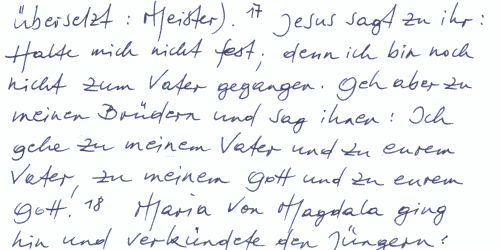 übersetzt: Meister). 17 Jesus sagt zu ihr:
Halte mich nicht fest; denn ich bin noch
nicht zum Vater gegangen. Geh aber zu
meinen Brüdern und sag ihnen: Ich
gehe zu meinem Vater und zu eurem
Vater, zu meinem Gott und zu eurem
Gott. 18 Maria von Magdala ging
hin und verkündete den Jüngern: